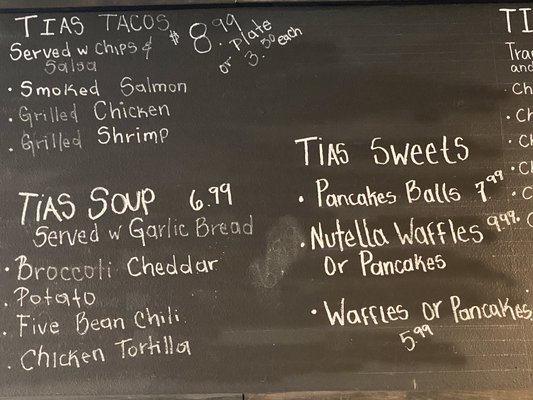 TIAS TACOS $8.99 Plate
Served w chips & or 3.50 each
Salsa
• Smoked Salmon
• Grilled Chicken
• Grilled Shrimp
TIAS SOUP 6.99
Served w Garlic Bread
• Broccoli Cheddar
• Potato
• Five Bean Chili
• Chicken Tortilla
TIAS Sweets
• Pancakes Balls 7.99
• Nutella Waffles 9.99
Or Pancakes
• Waffles Or Pancakes
5.99
TI
and